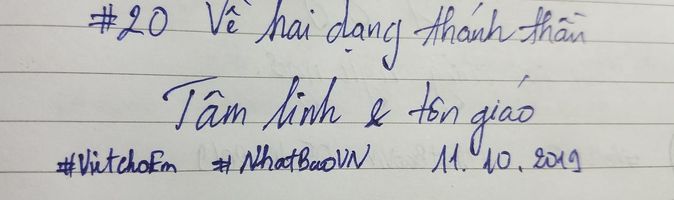 #20 Về hai dạng thánh thần
Tâm linh & tôn giáo
#ViếtchoEm #NhatBaoVN 11.10.2019